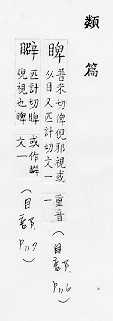 類篇
睥
普米切俾倪邪視或
以目又匹計切文一
重音
一
(目部下
P116)
匹計切睥
倪視也睥
或作
文一
(目部下
P117)